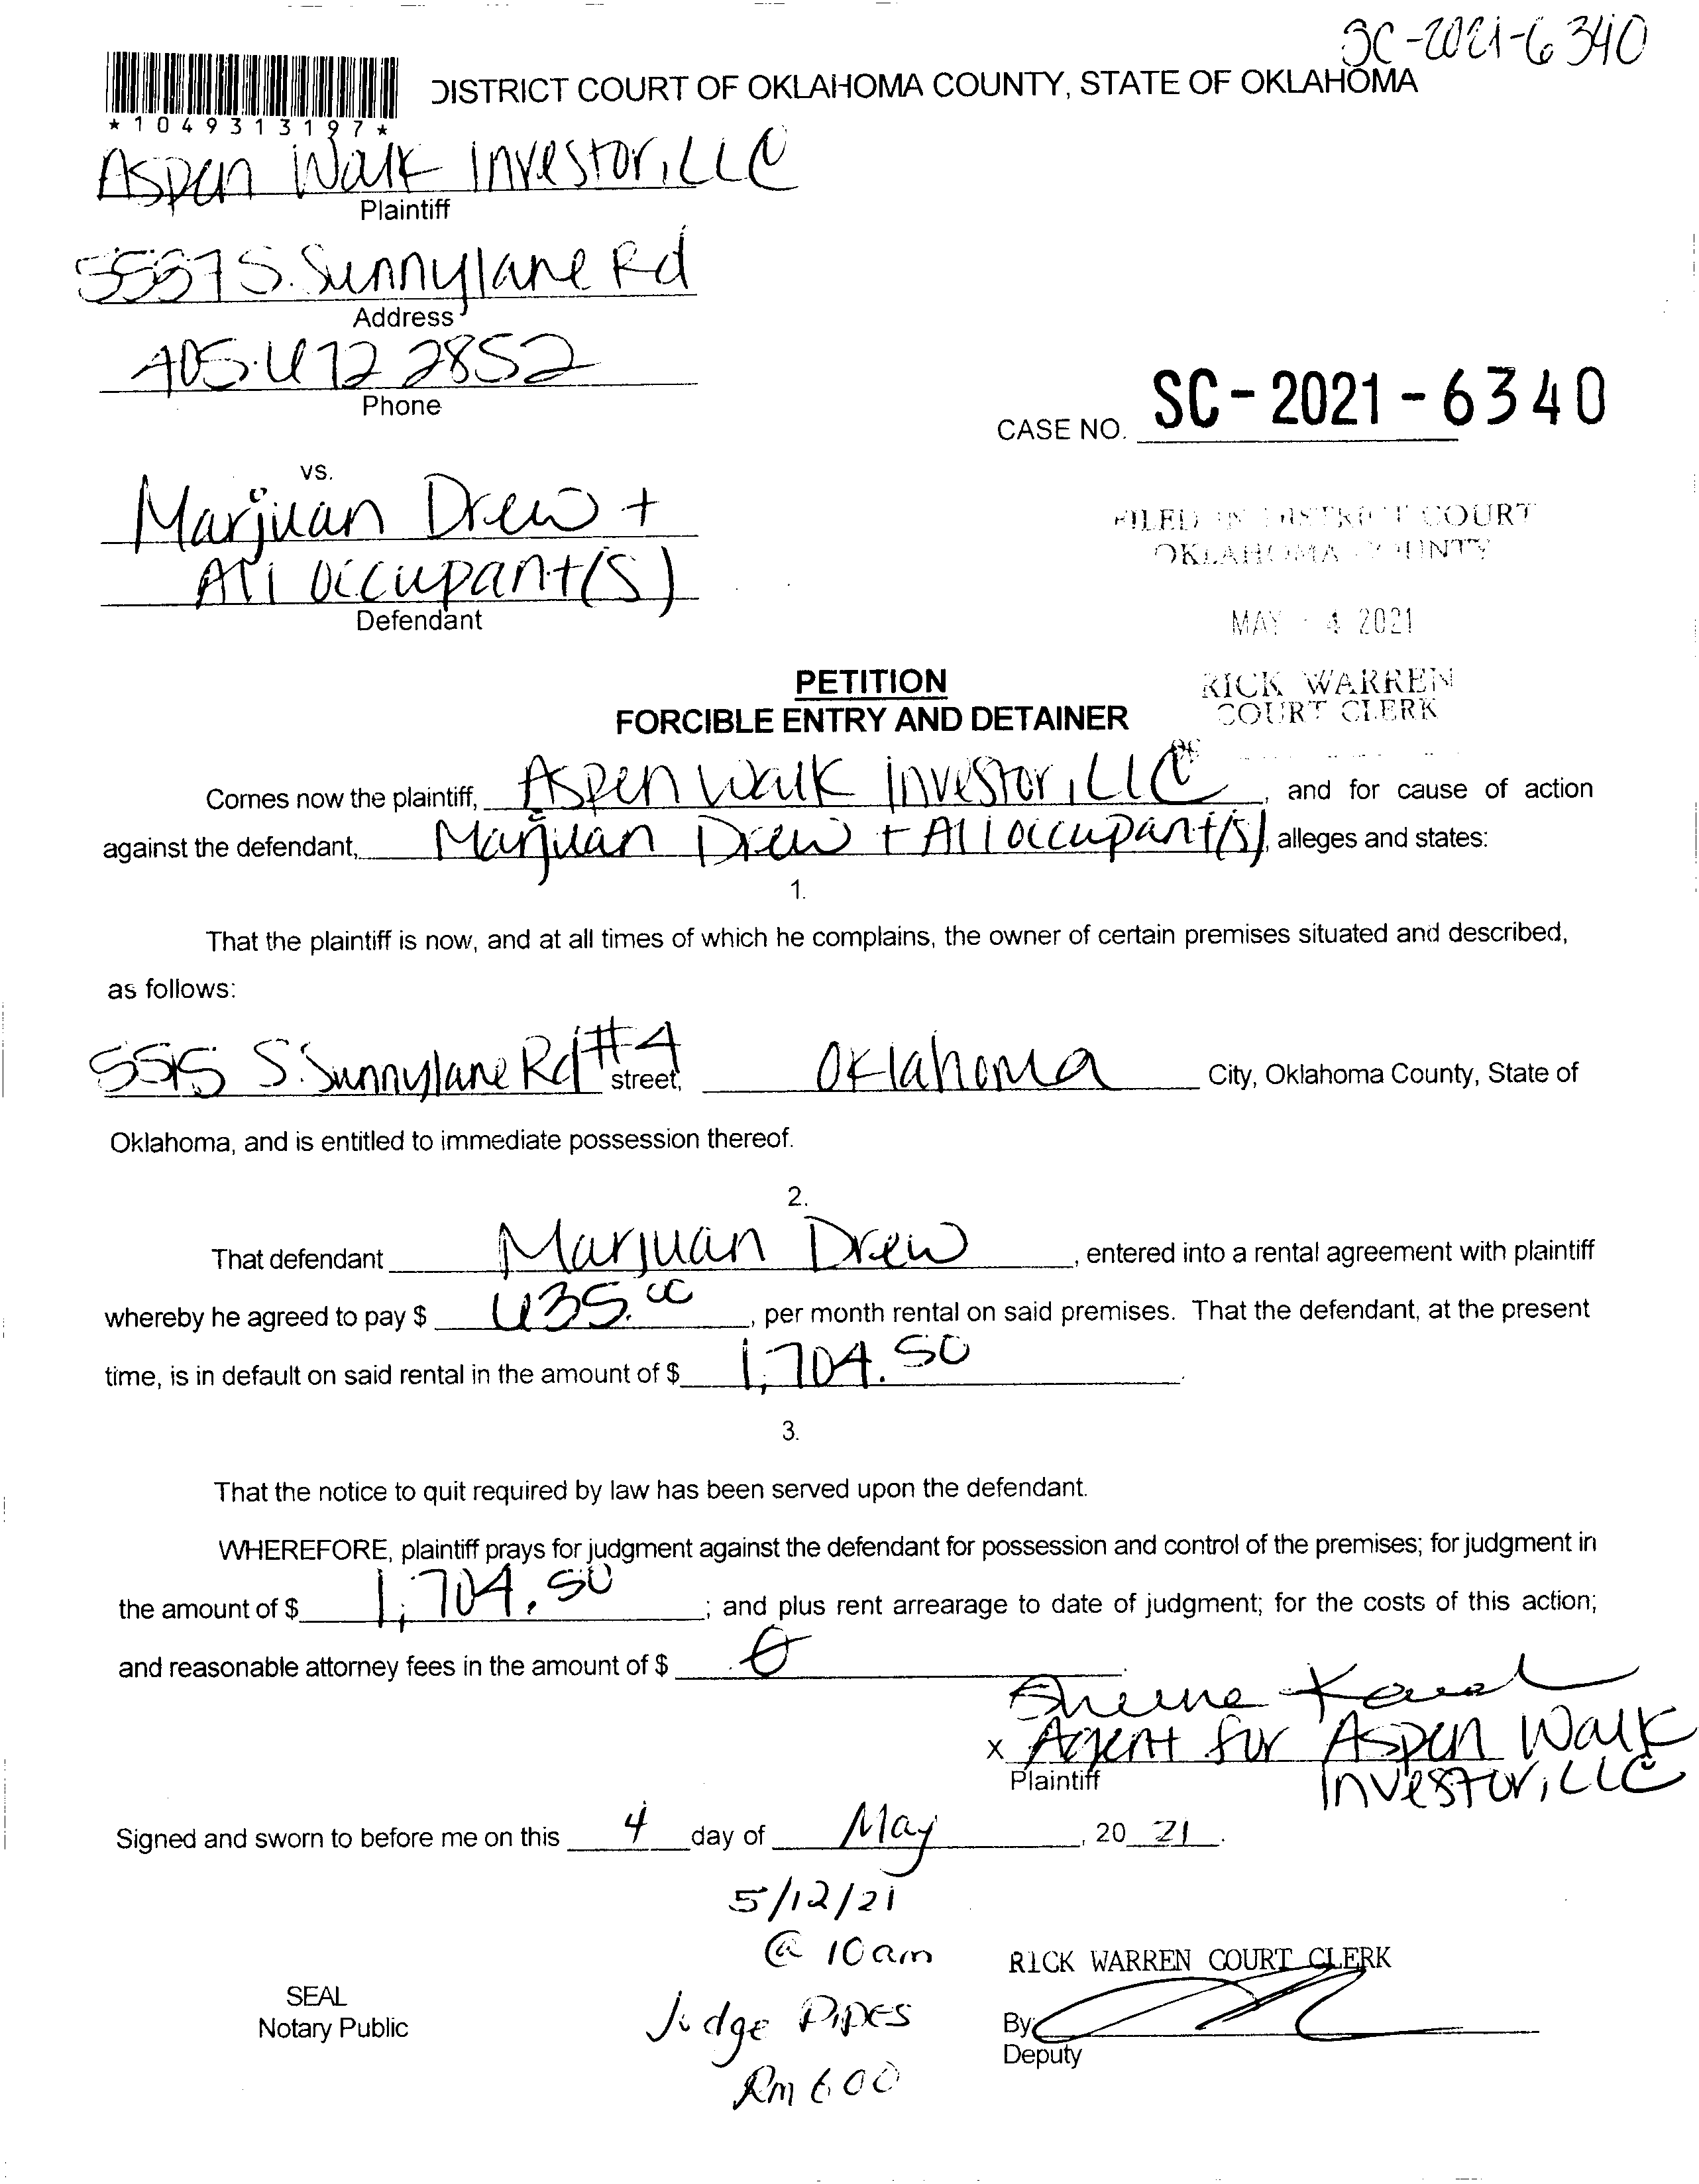 SC-2021-6340
DISTRICT COURT OF OKLAHOMA COUNTY, STATE OF OKLAHOMA
*1049313197*
Aspen Walk Investor, LLC
Plaintiff
5537 S. Sunnylane Rd
Address
405.672 2852
Phone
CASE NO. SC-2021-6340
vs.
Marjuan Drew +
All occupant(s)
Defendant
FILED IN DISTRICT COURT
OKLAHOMA COUNTY
MAY - 4 2021
RICK WARREN
COURT CLERK
PETITION
FORCIBLE ENTRY AND DETAINER
Comes now the plaintiff, Aspen Walk Investor, LLC, and for cause of action
against the defendant, Marjuan Drew + All occupant(s), alleges and states:
1.
That the plaintiff is now, and at all times of which he complains, the owner of certain premises situated and described,
as follows:
5515 S. Sunnylane Rd #4 street, Oklahoma City, Oklahoma County, State of
Oklahoma, and is entitled to immediate possession thereof.
2.
That defendant Marjuan Drew, entered into a rental agreement with plaintiff
whereby he agreed to pay $ 635.00, per month rental on said premises. That the defendant, at the present
time, is in default on said rental in the amount of $ 1,704.50.
3.
That the notice to quit required by law has been served upon the defendant.
WHEREFORE, plaintiff prays for judgment against the defendant for possession and control of the premises; for judgment in
the amount of $ 1,704.50; and plus rent arrearage to date of judgment; for the costs of this action;
and reasonable attorney fees in the amount of $ 0.
x Agent for Aspen Walk
Investor, LLC
Plaintiff
Signed and sworn to before me on this 4 day of May, 20 21.
5/12/21
@ 10am
Judge Pipes
Rm 600
SEAL
Notary Public
RICK WARREN COURT CLERK
By:
Deputy